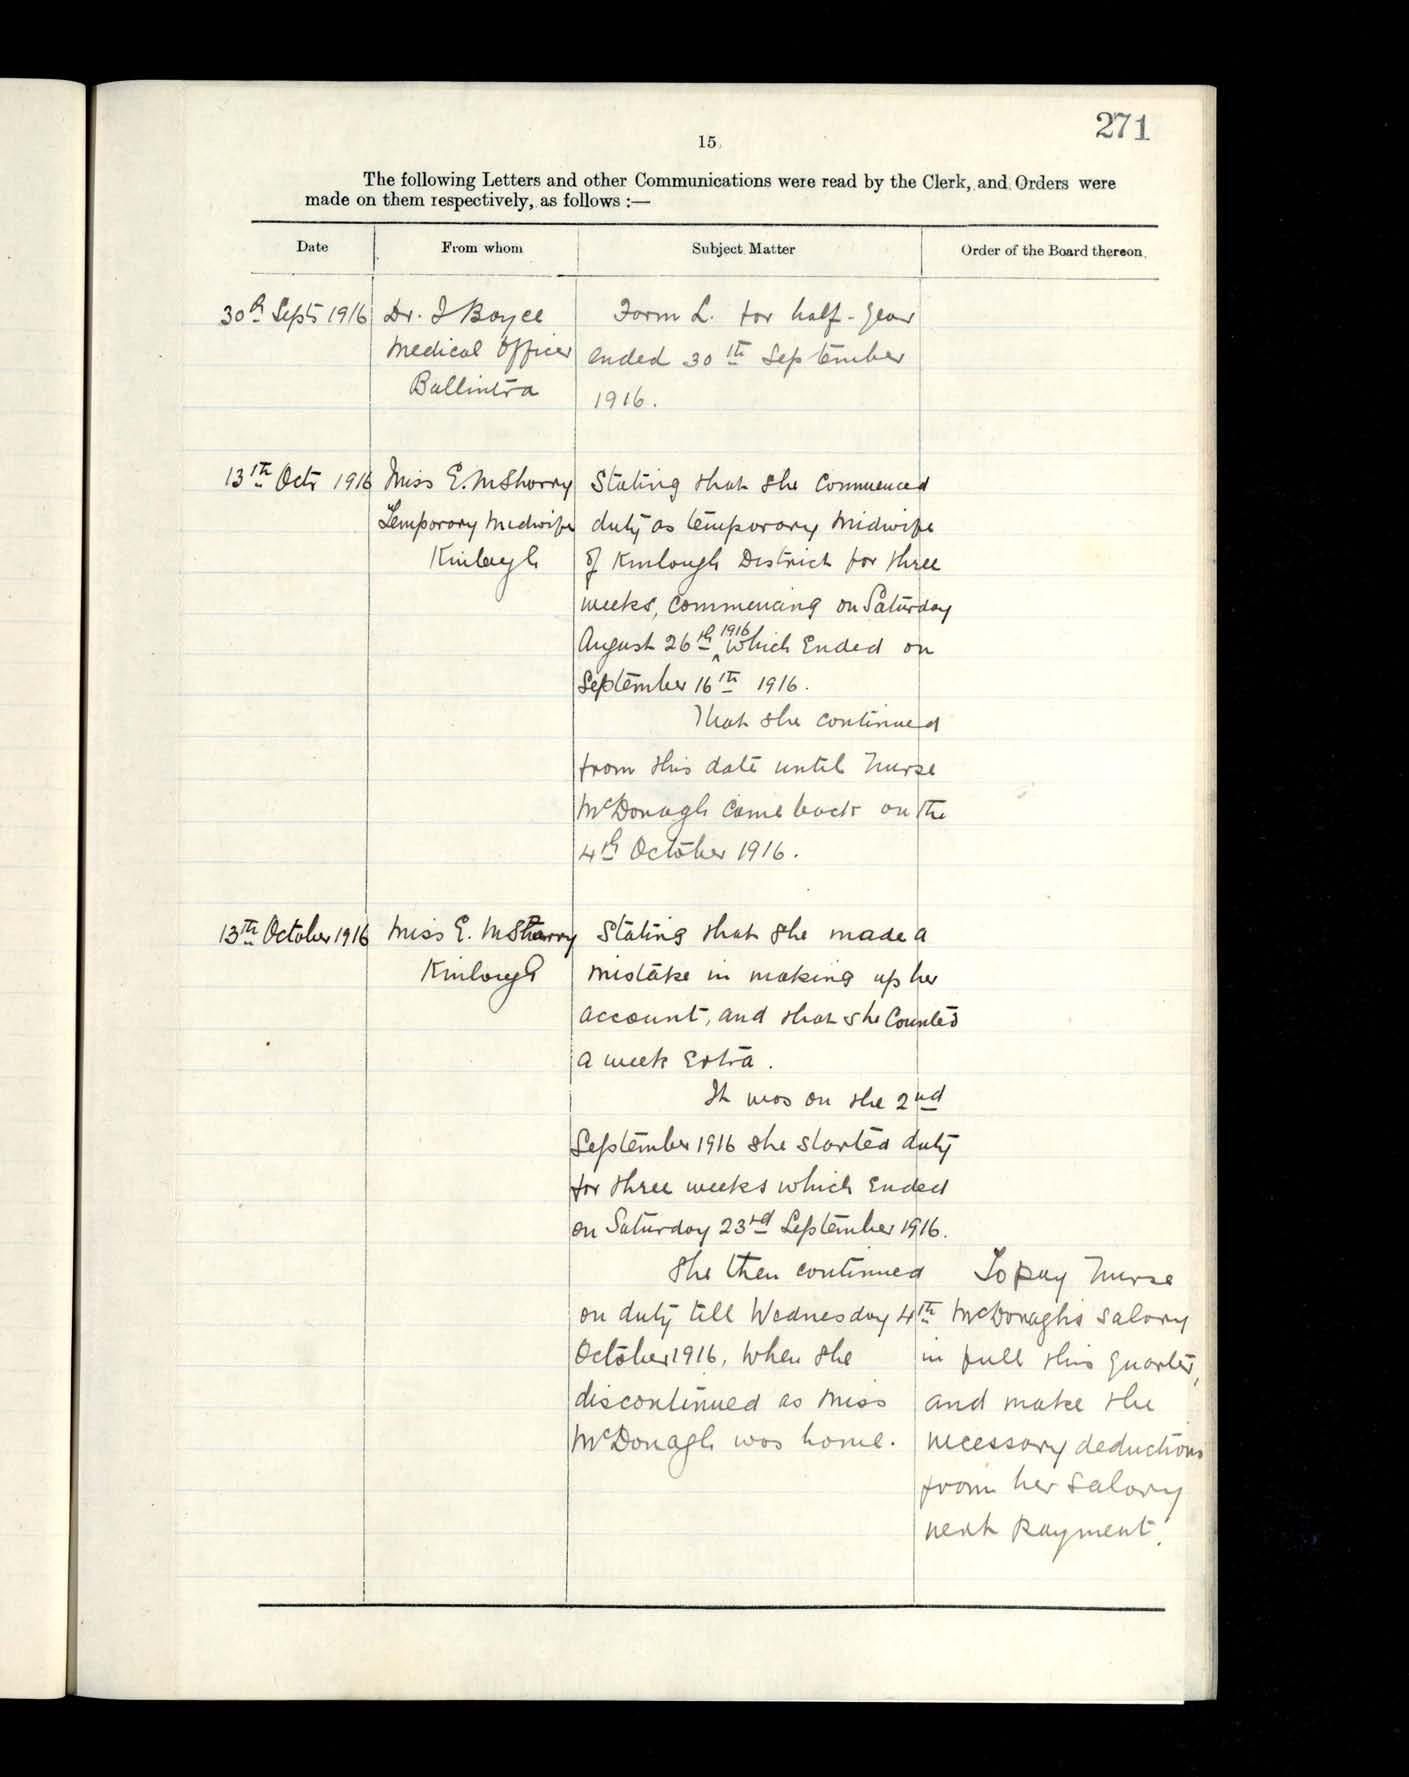 271
15
The following Letters and other Communications were read by the Clerk, and Orders were
made on them respectively, as follows :—
Date
From whom
Subject Matter
Order of the Board thereon
30th Sept 1916
Dr. J Boyce
Medical Officer
Ballintra
Form L. for half-year
ended 30th September
1916.
13th Octr 1916
Miss E. McSharry
Temporary Midwife
Kinlough
Stating that she commenced
duty as temporary Midwife
of Kinlough District for three
weeks, commencing on Saturday
August 26th 1916 which Ended on
September 16th 1916.
That she continued
from this date until Nurse
McDonagh came back on the
4th October 1916.
13th October 1916
Miss E. McSharry
Kinlough
Stating that she made a
mistake in making up her
account, and that she Counted
a week Extra.
It was on the 2nd
September 1916 she started duty
for three weeks which Ended
on Saturday 23rd September 1916.
She then continued
on duty till Wednesday 4th
October 1916, when she
discontinued as Miss
McDonagh was home.
To pay Nurse
McDonagh's salary
in full this quarter,
and make the
necessary deductions
from her salary
next payment.